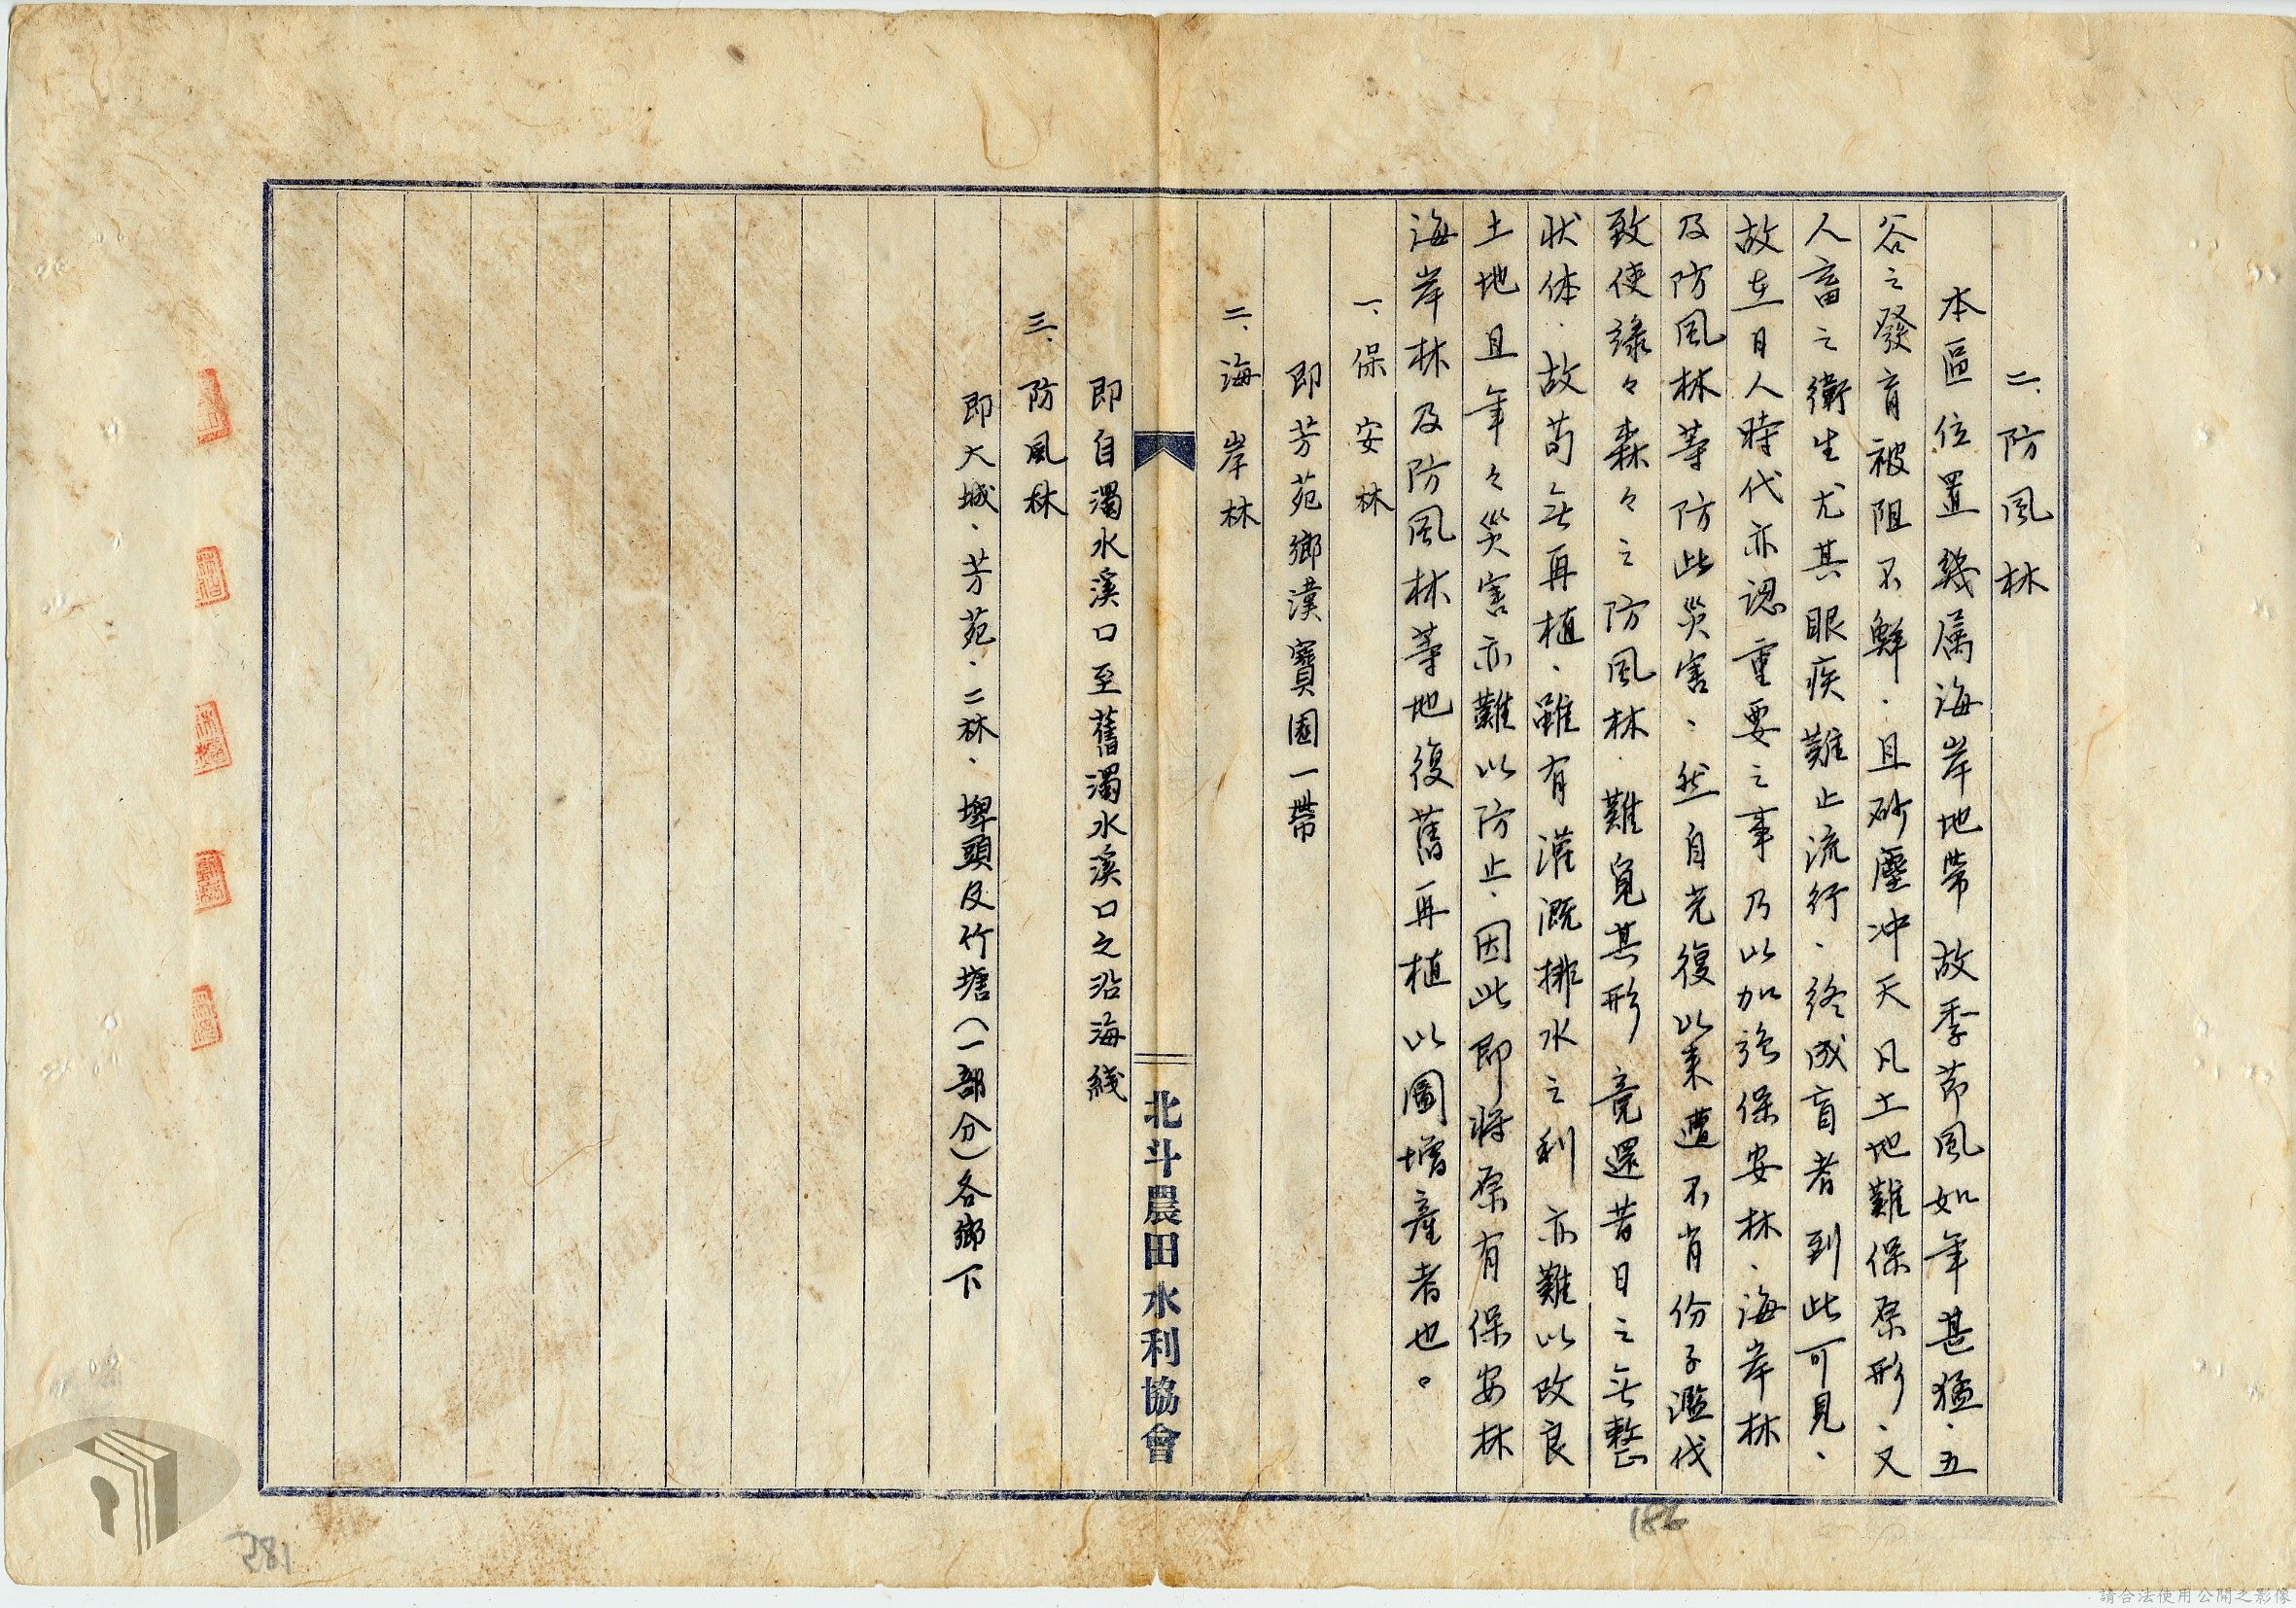 二、防風林
本區位置幾属海岸地帶 故季节風如年甚猛、五
谷之發育被阻不鮮、且砂塵冲天凡土地難保原形、又
人畜之衛生尤其眼疾難止流行、終成盲者到此可見、
故在日人時代亦認重要之事乃以加強保安林、海岸林
及防風林等防此災害、然自光復以来遭不肖份子濫伐
致使綠々森々之防風林、難覓其形 竟還昔日之无整
状体、故苟无再植、雖有灌溉排水之利亦難以改良
土地且年々災害亦難以防止、因此即将原有保安林
海岸林及防風林等地復舊再植以圖增產者也。
一、保安林
即芳苑鄉漢寶園一帶
二、海岸林
北斗農田水利協會
即自濁水溪口至舊濁水溪口之沿海綫
三、防風林
即大城、芳苑、二林、埤頭及竹塘(一部分)各鄉下
186
281
請合法使用公開之影像